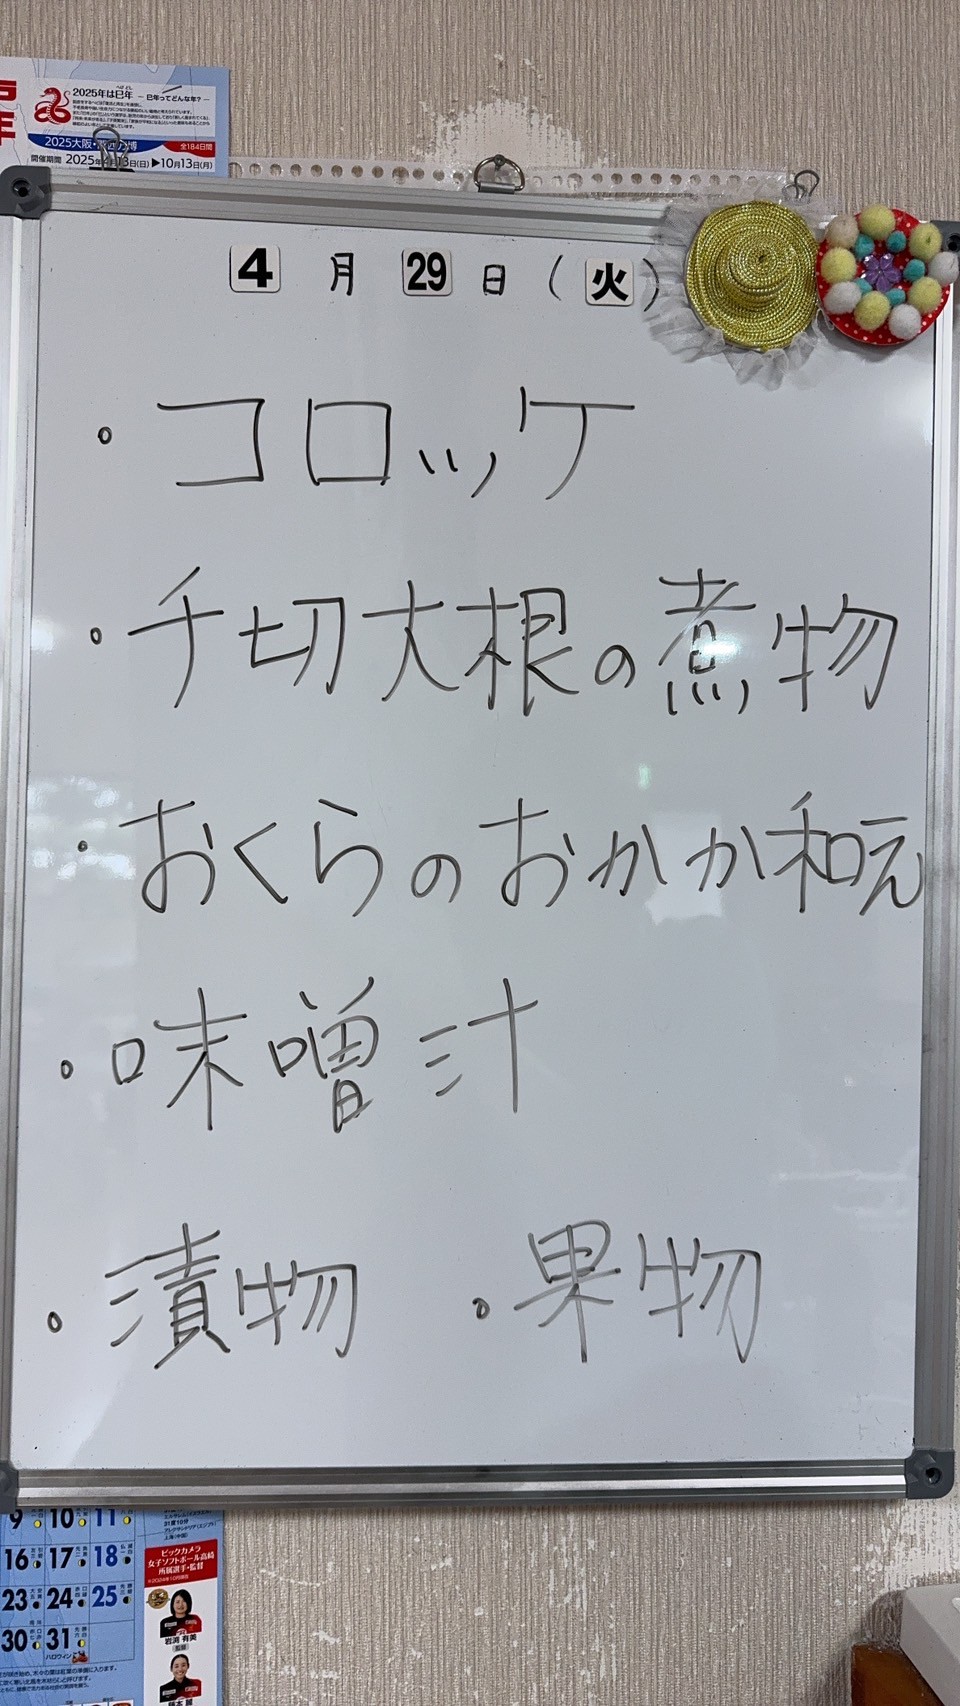 2025年は巳年 ― 巳年ってどんな年? ―
2025大阪・
全184日間
開催期間 2025年4月13日(日)▶10月13日(月)
4月29日(火)
・コロッケ
・千切大根の煮物
・おくらのおかか和え
・味噌汁
・漬物 ・果物
9 10 11
16 17 18
23 24 25
30 31
ハロウィン
ビックカメラ
女子ソフトボール高崎
所属選手・監督
岩渕 有美
監督